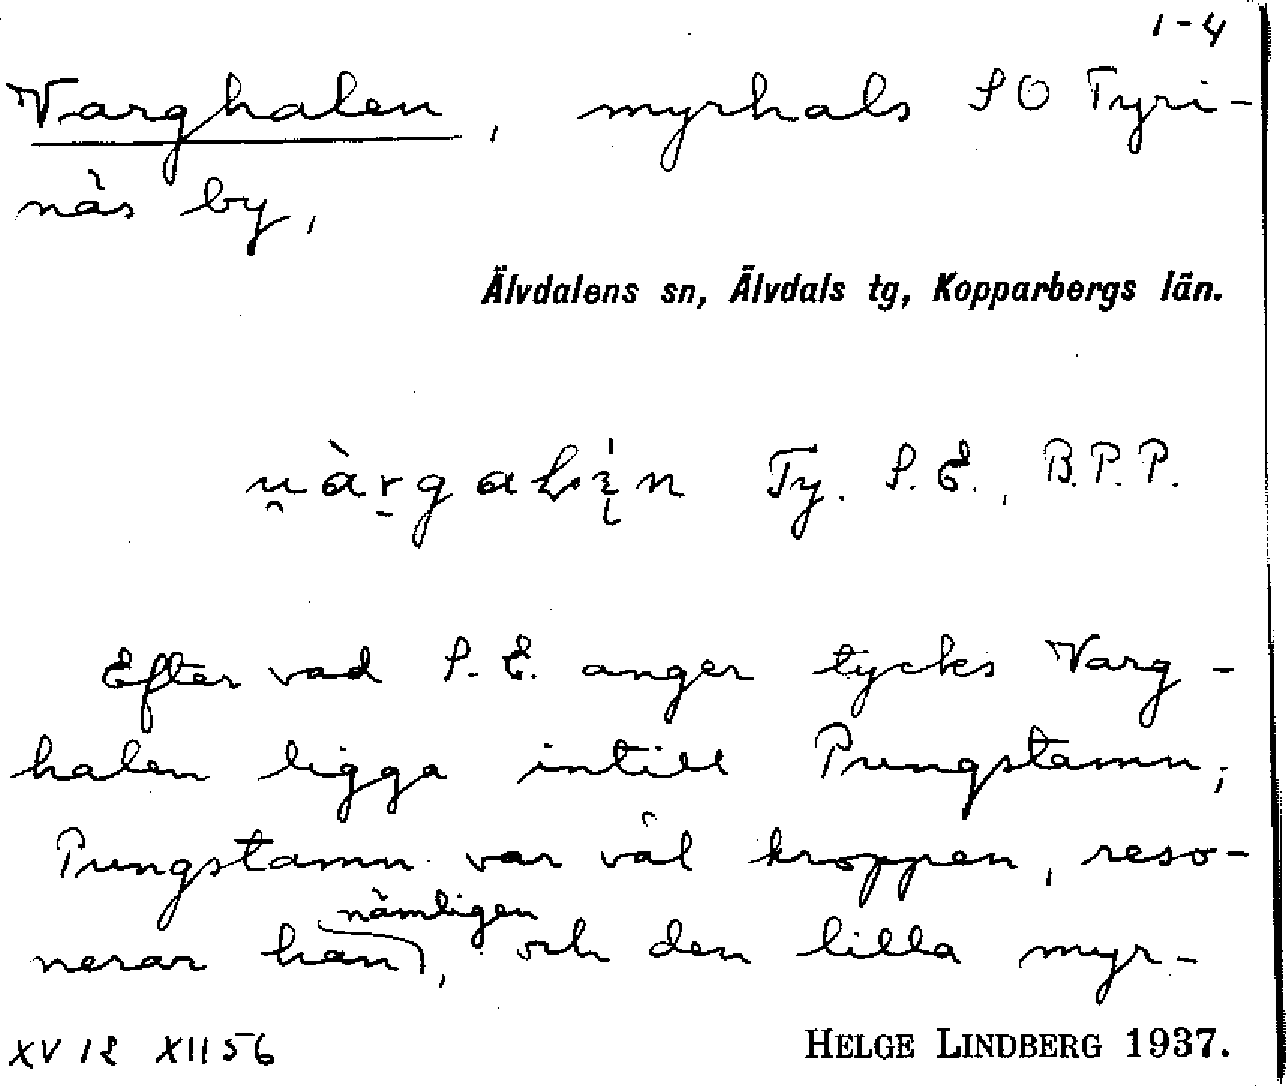 1-4
Varghalen, myrhals SO Tyri-
näs by,
Älvdalens sn, Älvdals tg, Kopparbergs län.
Ty. S.E., B.P.P.
Efter vad S.E. anger tycks Varg-
halen ligga intill Pungstamn;
Pungstamn var väl kroppen, reso-
nerar han nämligen, och den lilla myr-
XV 12 XII 56
HELGE LINDBERG 1937.